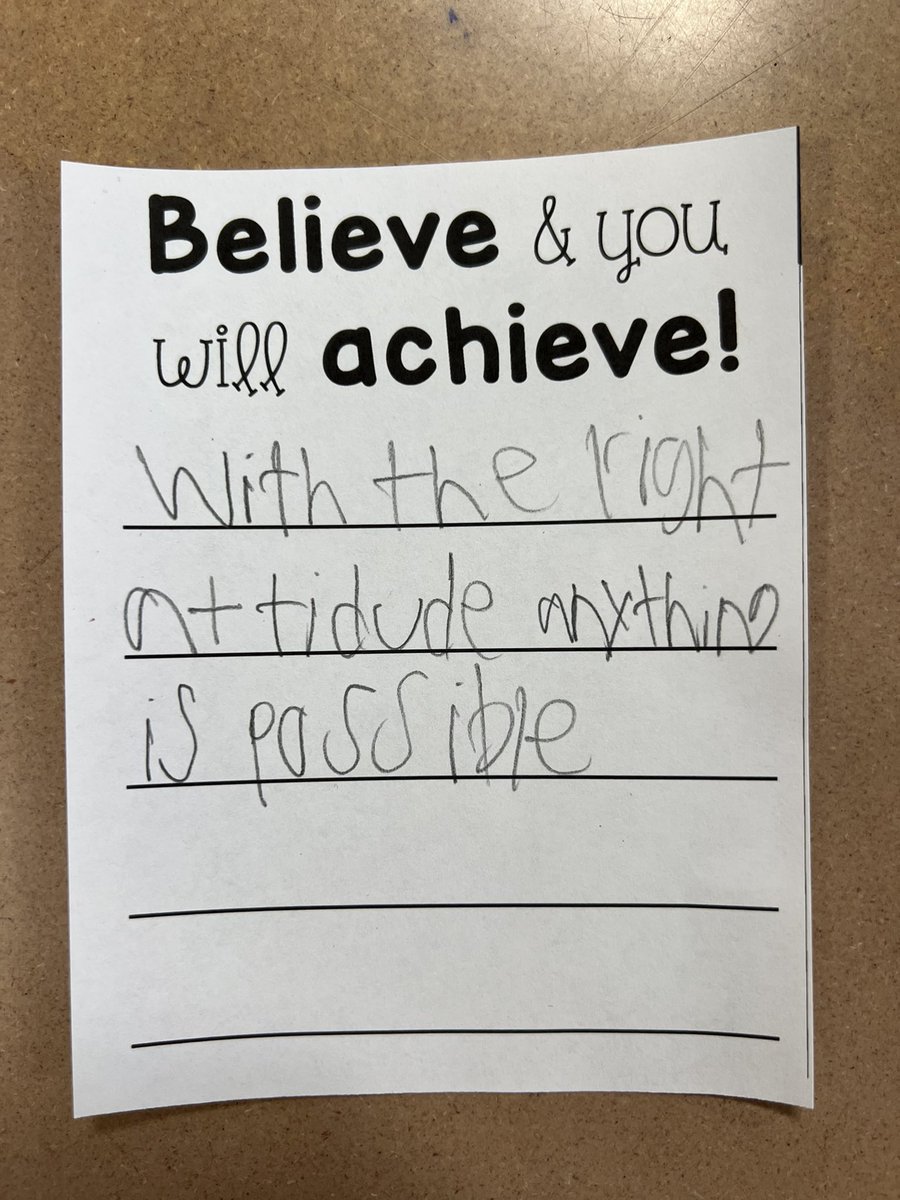 Believe & you
will achieve!
With the right
attidude anything
is possible